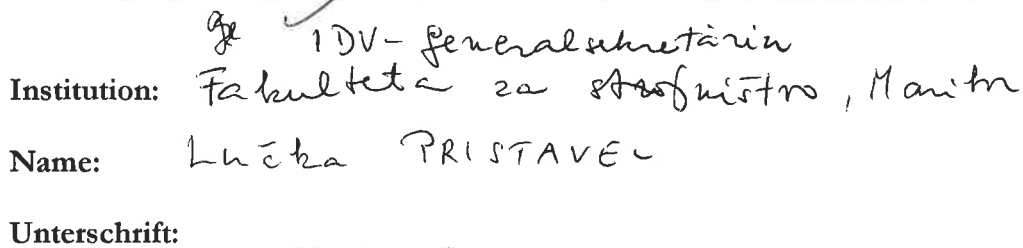 IDV-Generalsekretärin
Institution: Fakulteta za strojništvo, Maribor
Name: Lučka PRISTAVEC
Unterschrift: